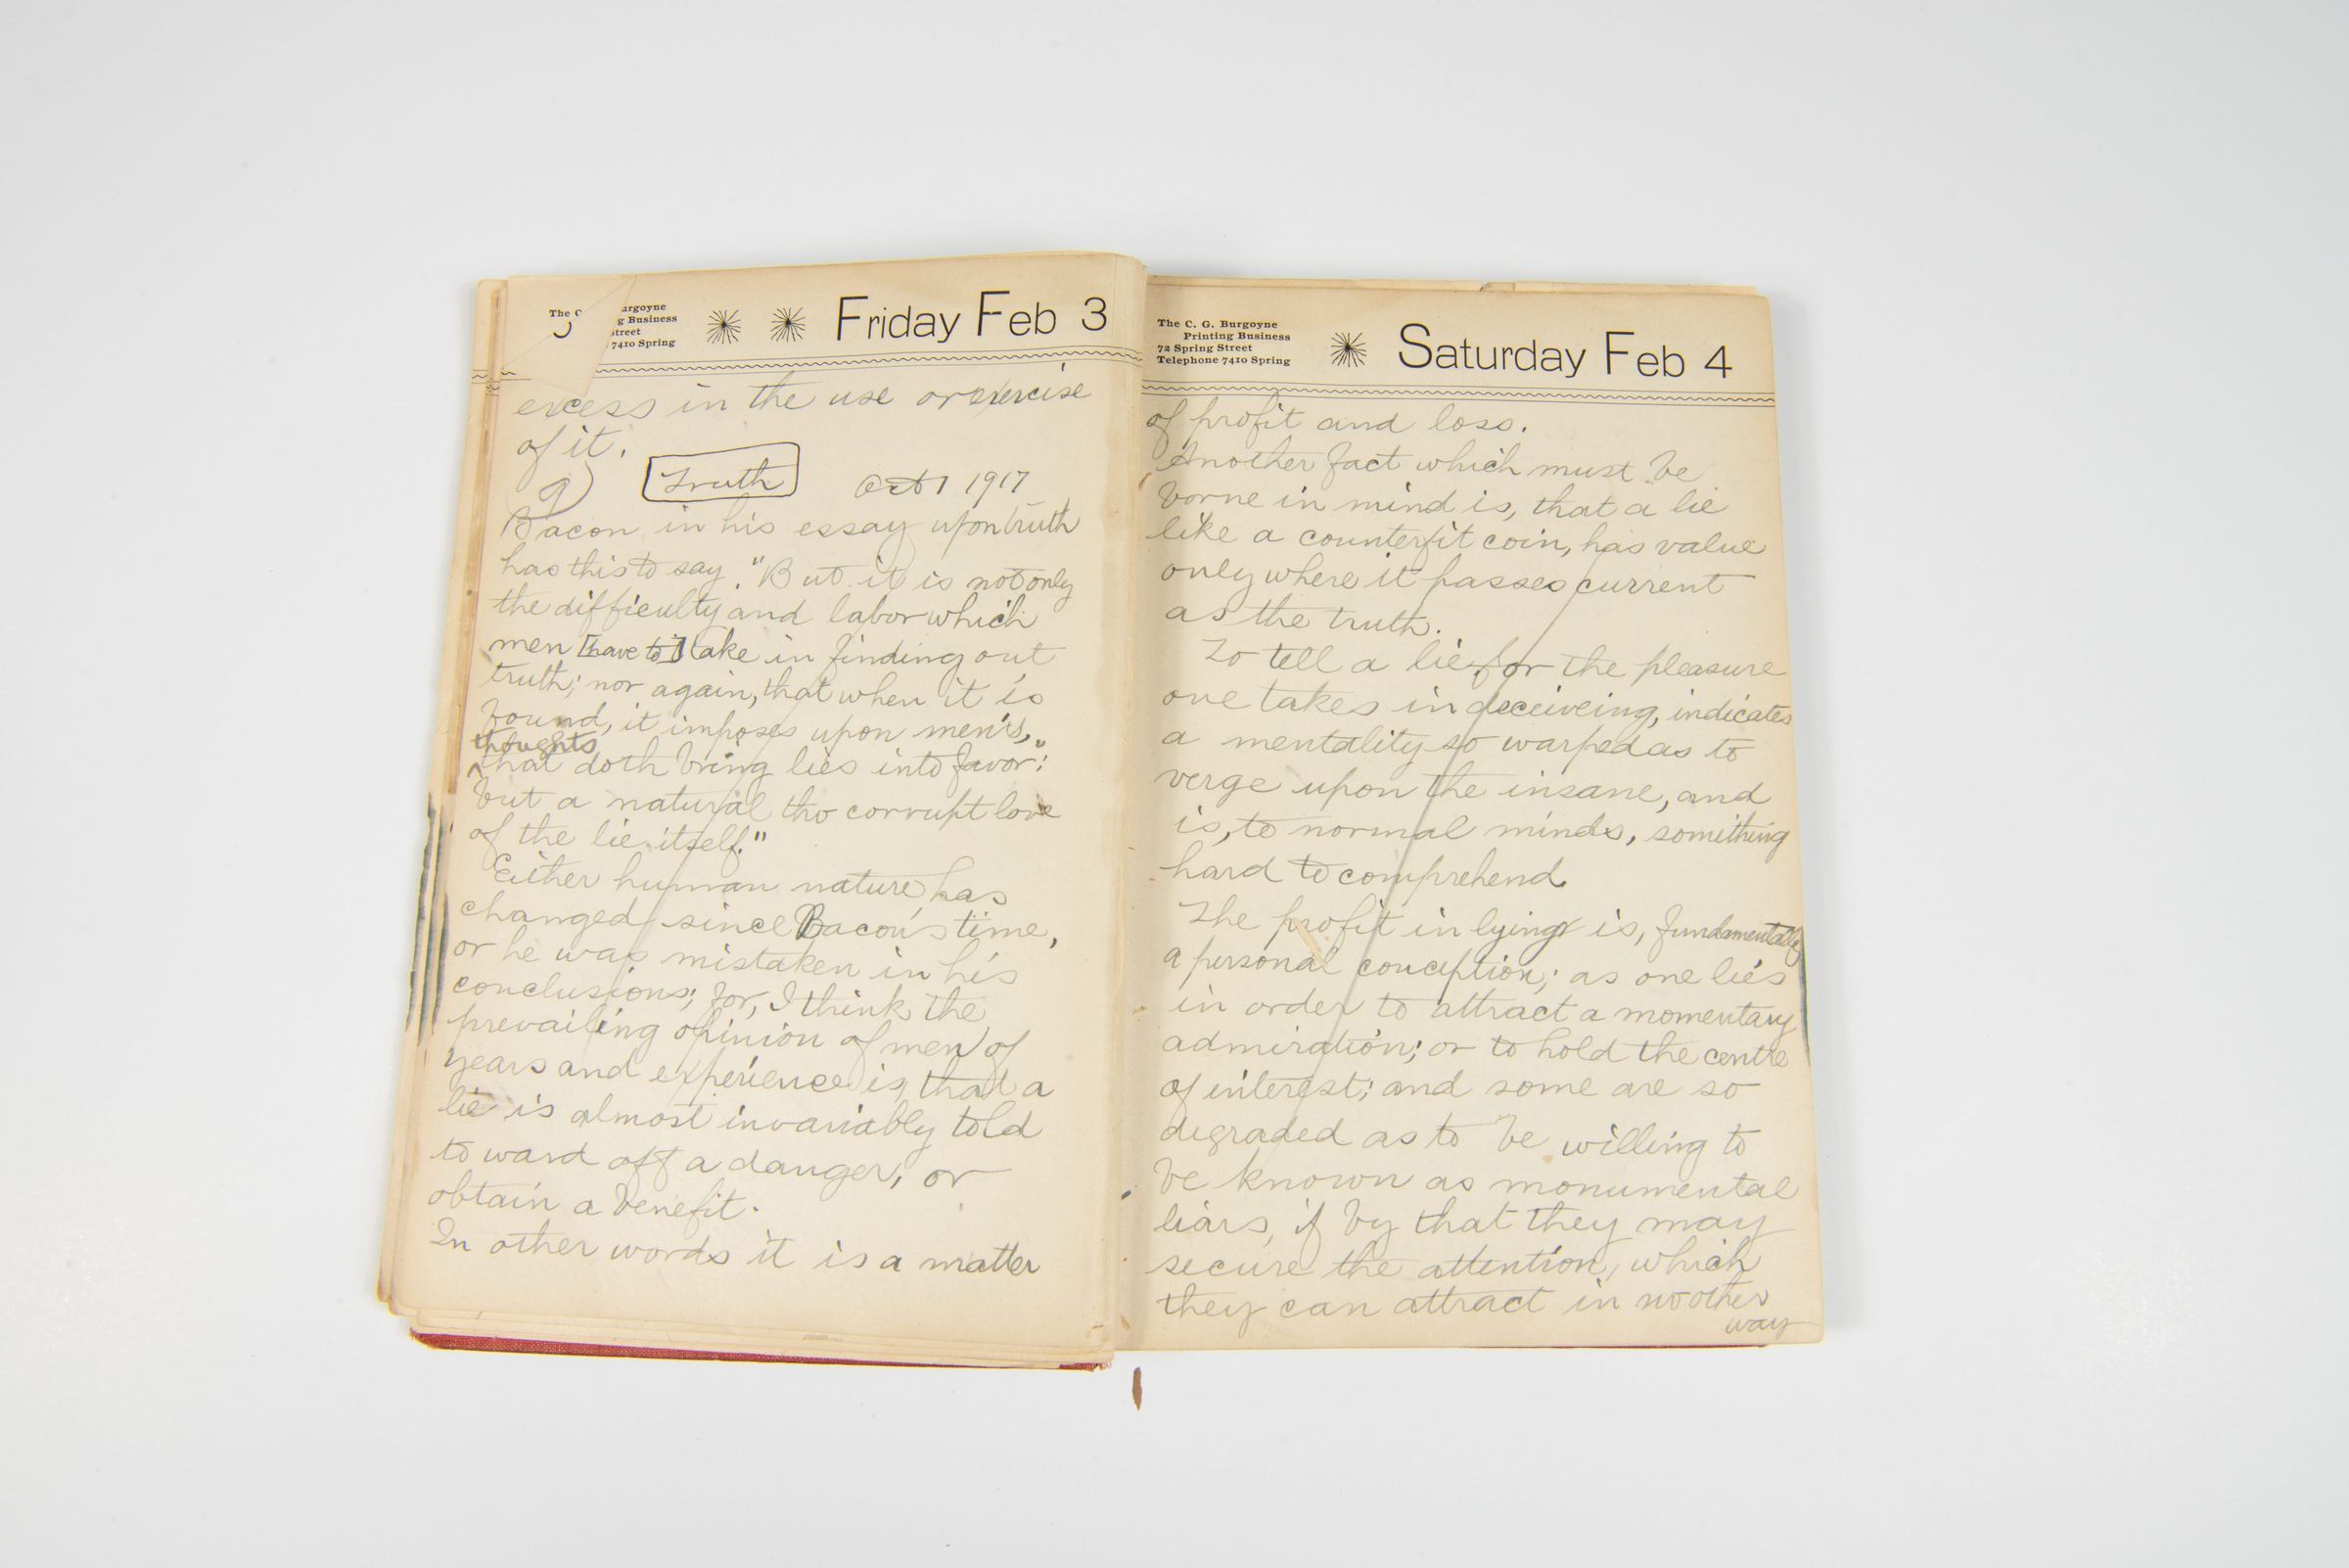 The C urgoyne
g Business
Street
7410 Spring
Friday Feb 3
excess in the use or exercise
of it.
9) Truth Oct 1 1917
Bacon in his essay upon truth
has this to say. "But it is not only
the difficulty and labor which
men [have to] take in finding out
truth; nor again, that when it is
found, it imposes upon men's,
thoughts
that doth bring lies into favor:"
but a natural tho corrupt love
of the lie itself."
Either human nature has
changed since Bacon's time,
or he was mistaken in his
conclusions; for, I think the
prevailing opinion of men of
years and experience is that a
lie is almost invariably told
to ward off a danger, or
obtain a benefit.
In other words it is a matter
The C. G. Burgoyne
Printing Business
72 Spring Street
Telephone 7410 Spring
Saturday Feb 4
of profit and loss.
Another fact which must be
borne in mind is, that a lie
like a counterfit coin, has value
only where it passes current
as the truth.
To tell a lie for the pleasure
one takes in deceiveing, indicates
a mentality so warped as to
verge upon the insane, and
is, to normal minds, something
hard to comprehend.
The profit in lying is, fundamentally
a personal conception; as one lies
in order to attract a momentary
admiration; or to hold the centre
of interest; and some are so
degraded as to be willing to
be known as monumental
liars, if by that they may
secure the attention, which
they can attract in no other
way